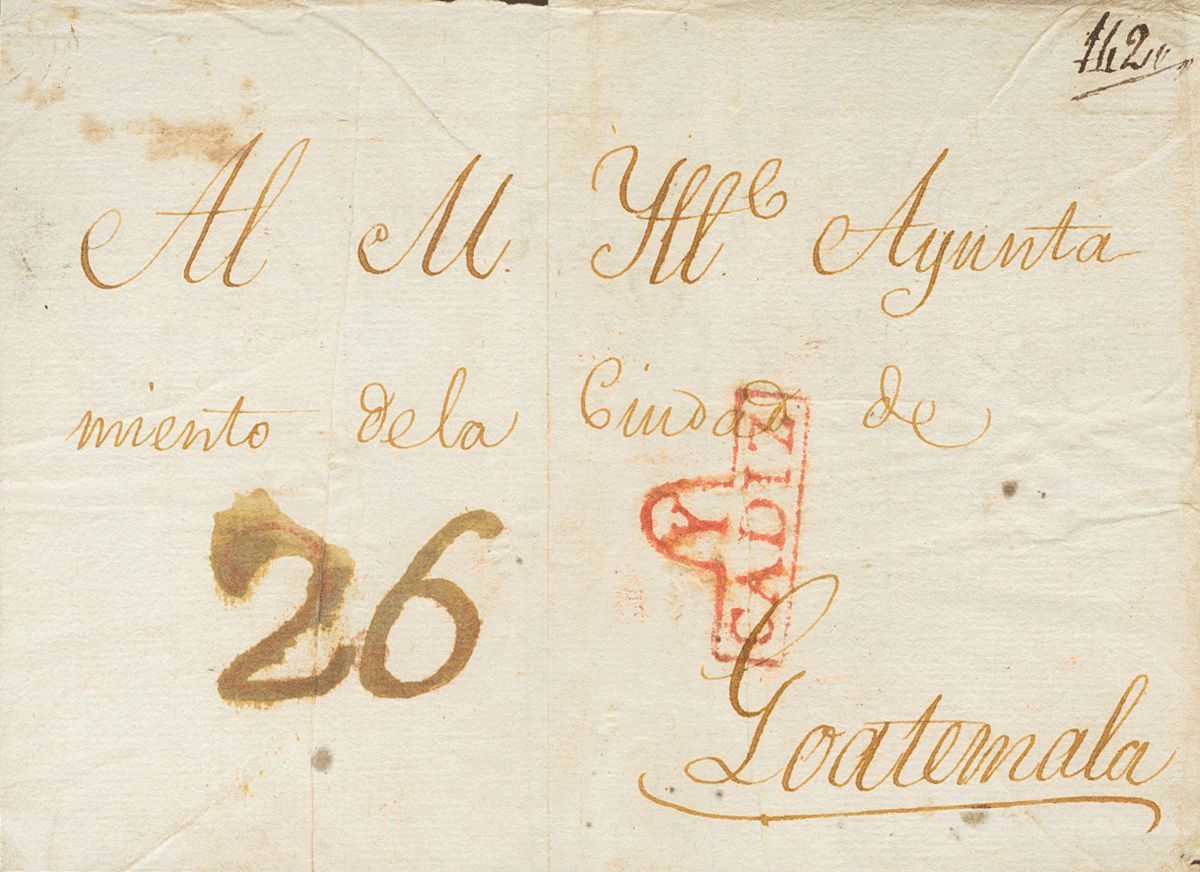 142,,
Al M. Yll.e Ayunta
miento de la Ciudad de
26
Y
CADIZ
Goatemala